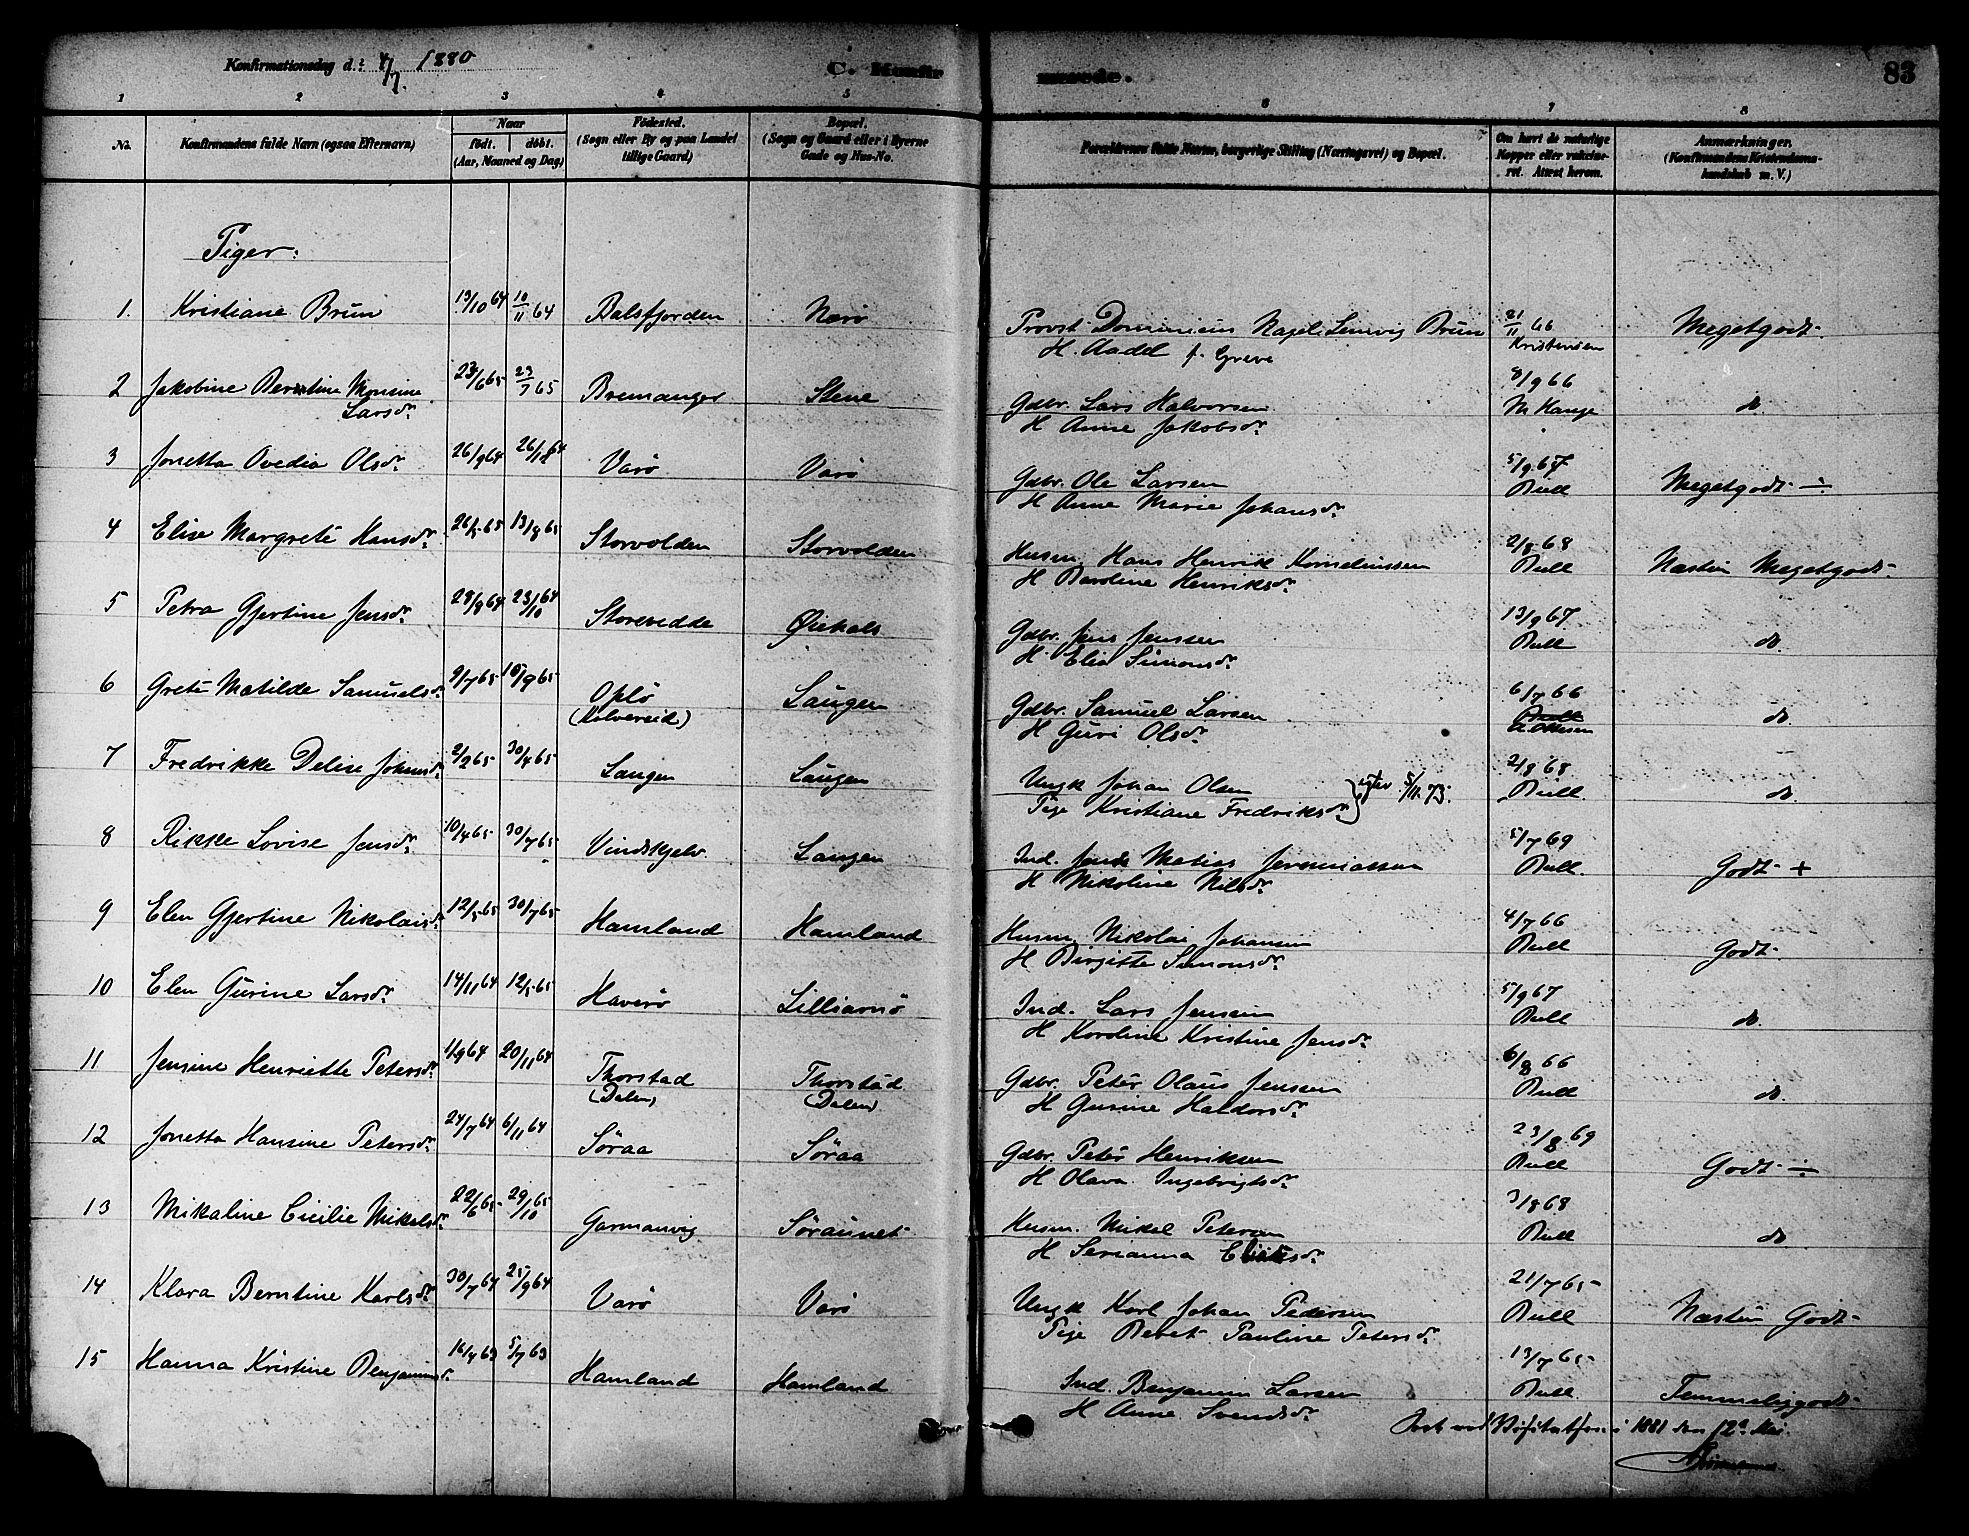 Konfirmationsdag d: 4/7 1880
C. Konfirmerede.
83
1 2 3 4 5 6 7 8
No. Konfirmandens fulde Navn (ogsaa Efternavn) Naar født. døbt. (Aar, Maaned og Dag) Fødested. (Sogn eller By og paa Landet tillige Gaard) Bopæl. (Sogn og Gaard eller i Byerne Gade og Hus-No. Forældrenes fulde Navne, borgerlige Stilling (Næringsvei) og Bopæl. Om havt de naturlige Kopper eller vakcineret. Attest herom. Anmærkninger. (Konfirmandens Kristendomskundskab m. V.)
Piger:
1. Kristiane Brun 19/10 64 10/11 64 Balsfjorden Nærø Provst Dominicus Nagel Lemvig Brun 21/11 66 Megetgodt
H. Aadel f. Greve Kristensen
2 Jakobine Berntine Monsine 23/6 65 23/7 65 Bremanger Stene Gdbr. Lars Halvorsen 8/9 66 do
Larsdr. H Anne Jakobsdr. M Hauge
3 Jonetta Ovedia Olsdr. 26/9 64 26/12 64 Varø Varø Gdbr. Ole Larsen 5/9 67 Megetgodt ÷
H Anne Marie Johansdr. Bull
4 Elise Margrete Hansdr. 26/5 65 13/8 65 Storvolden Storvolden Husm. Hans Henrik Kornelinssen 2/8 68 Næsten Megetgodt
H Baroline Henriksdr. Bull
5 Petra Gjertine Jensdr. 28/8 64 23/10 64 Storevedde Øiekals Gdbr. Jens Jenssen 13/9 67 do
H. Elia Simonsdr. Bull
6 Grete Matilde Samuelsdr. 9/7 65 10/9 65 Oplø Laugen Gdbr. Samuel Larsen 6/7 66 do
(Kolvereid) H Guri Olsdr.
7 Fredrikke Deline Johansdr. 2/2 65 30/4 65 Laugen Laugen Ungk Johan Olsen 2/8 68 do
Pige Kristiane Fredriksdr. } egtev 5/11 73. Bull.
8 Rikke Lovise Jensdr. 10/4 65 30/7 65 Vindskjelv Laugen Ind. Jens Matias Jeremiassen 5/7 69 Godt +
H Nikoline Nilsdr. Bull.
9 Elen Gjertine Nikolaisdr. 12/5 65 30/7 65 Hamland Hamland Husm. Nikolai Johansen 4/7 66 Godt
H Birgitte Simonsdr. Bull
10 Elen Gurine Larsdr. 14/11 64 12/5 65 Haverø Lilliarnø Ind. Lars Jensen 5/9 67 do
H Kordine Kristine Jensdr. Bull
11 Jensine Henriette Petersdr. 1/9 64 20/11 64 Thorstad Thorstad Gdbr. Peter Olaus Jenssen 6/8 66 do
(Dalen) (Dalen) H Gurine Haldorsdr. Bull
12 Jonetta Hansine Petersdr. 24/7 64 6/11 64 Søraa Søraa Gdbr. Peter Henriksen 23/8 69 Godt ÷
H Olava Ingebrigtsdr. Bull
13 Mikaline Cicilie Mikelsdr. 22/6 65 29/10 65 Garmanvig Søraunet Husm. Mikel Petersen 3/8 68 do
H Serianna Bull
14 Klara Berntine Karlsdr. 30/7 64 25/9 64 Varø Varø Ungk Karl Johan Pedersen 21/7 65 Næsten Godt
Pige Beret Pauline Petersdr. Bull
15 Hanna Kristine Benjaminsdr. 16/4 63 5/7 63 Hamland Hamland Ind. Benjamin Larsen 13/7 65 Temmeliggodt
H Anne Svendsdr. Bull
ved Visitatsen i 1881 den 12te Mai.